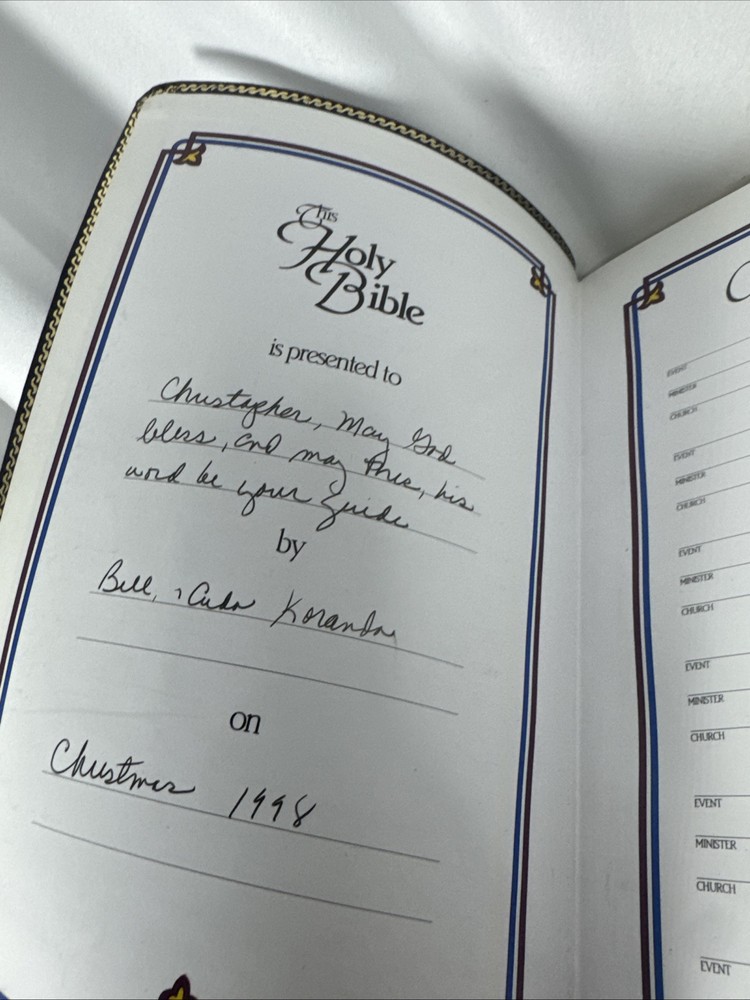 This
Holy
Bible
is presented to
Christopher, May God
bless, and may this, his
word be your guide
by
Bill, Koranda
on
Christmas 1998
EVENT
MINISTER
CHURCH
EVENT
MINISTER
CHURCH
EVENT
MINISTER
CHURCH
EVENT
MINISTER
CHURCH
EVENT
MINISTER
CHURCH
EVENT